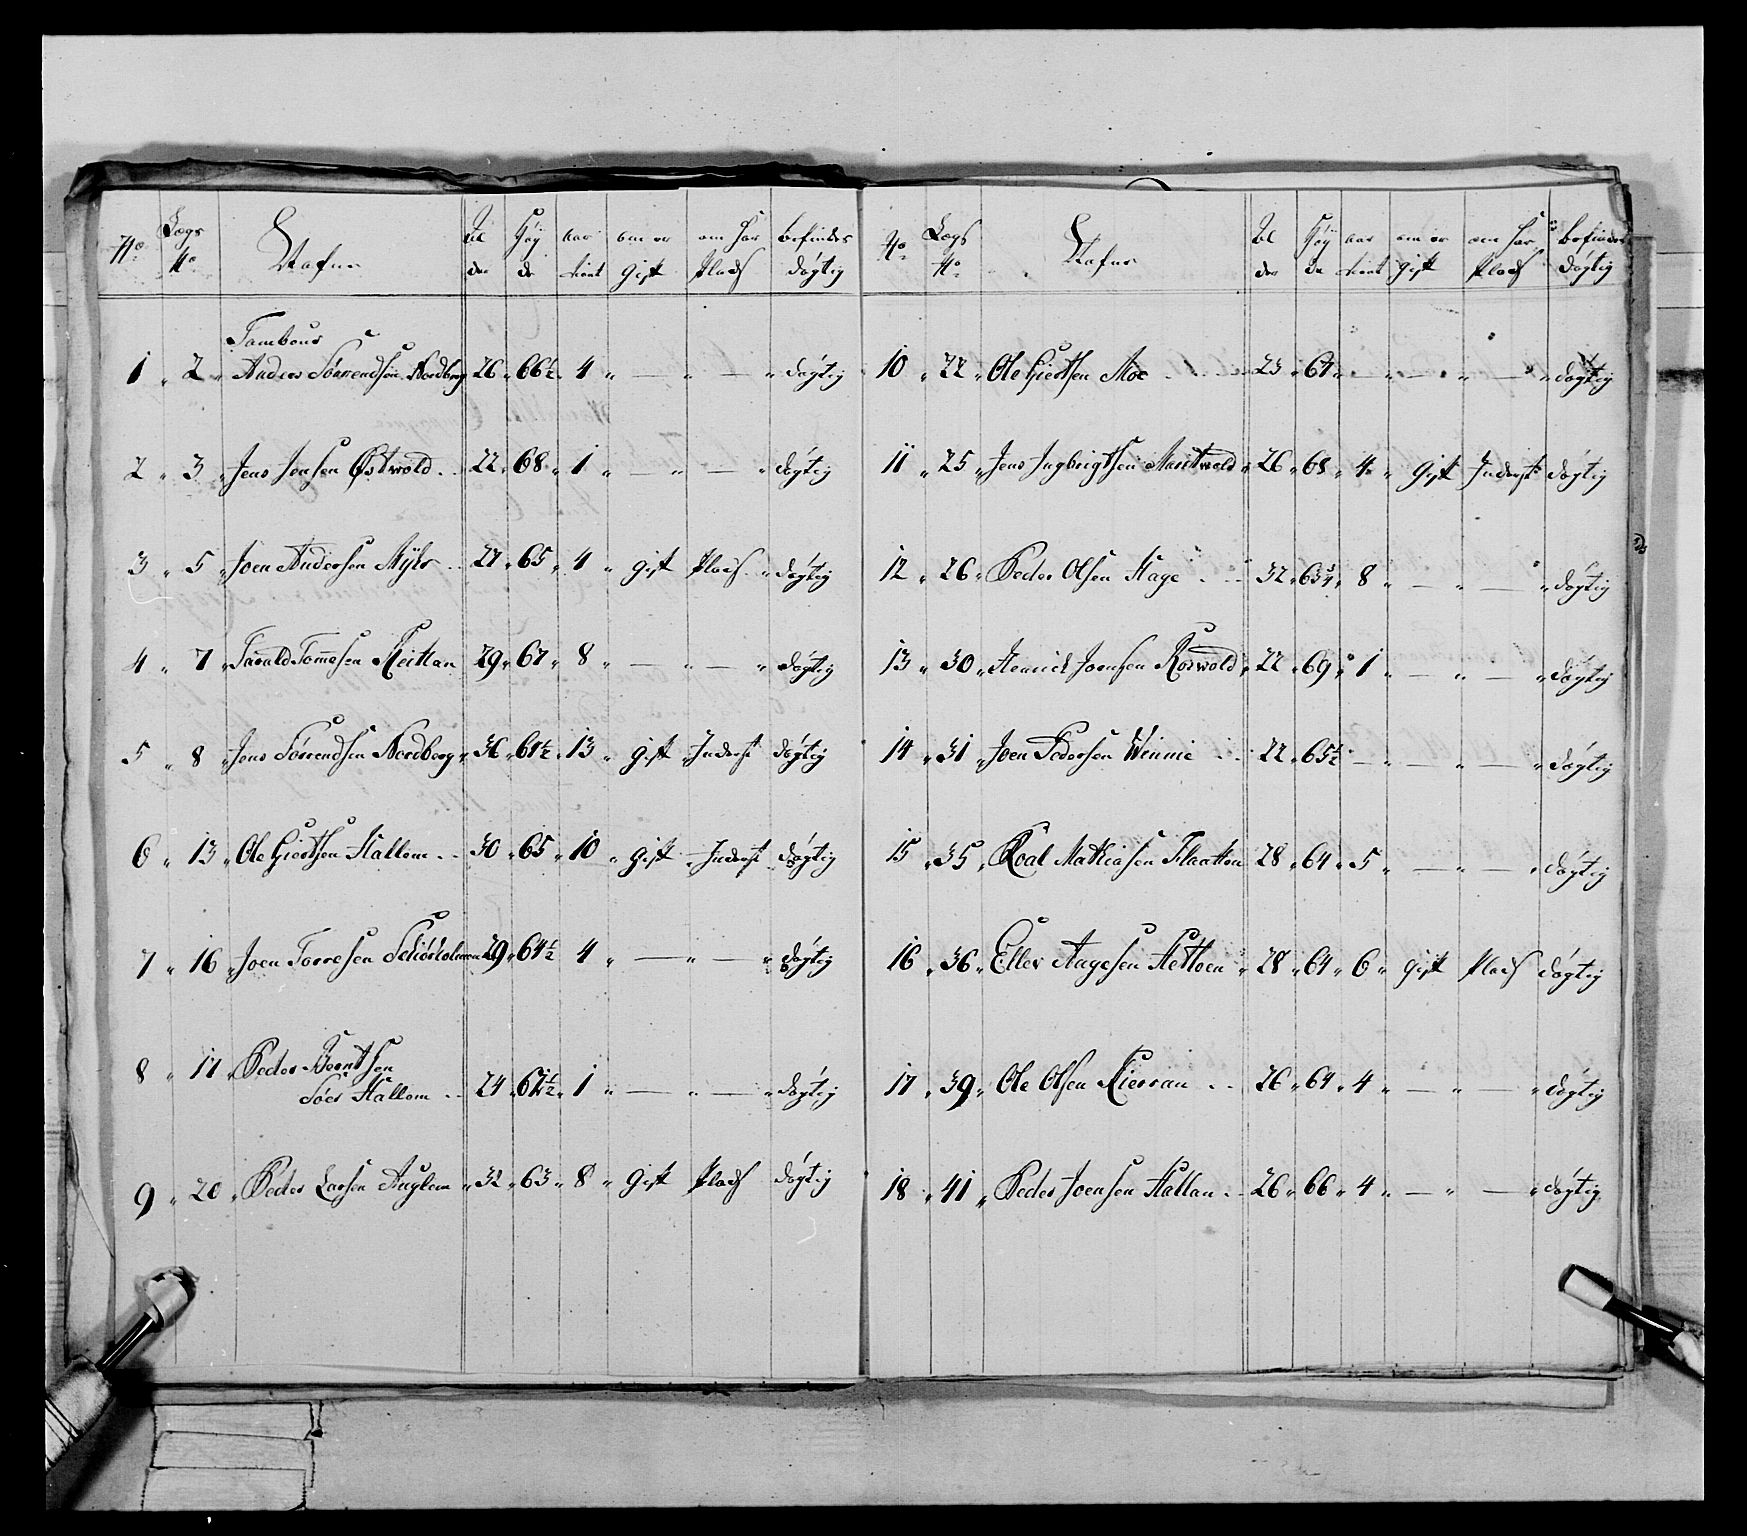 No. Lægs No. Nafne Al der Høy de aar tient om er gift om har Plads befindes døgtig
Tambour
1 " 2 " Anders Sørrendsen Nordberg 26 " 66½ " 4 " — " — " døgtig
2 " 3 " Jens Jensen Østwold 22 " 68 " 1 " — " — " døgtig
3 " 5 " Joen Andersen Myhr 22 " 65 " 4 " gift Plads " døgtig
4 " 7 " Tarald Tomesen 29 " 67 " 8 " — " — " døgtig
5 " 8 " Jens Sørrendsen Nordberg " 36 " 61½ " 13 " gift " Inderst døgtig
6 " 13 " Ole Giertsen Hallem 30 " 65 " 10 " gift " Inderst døgtig
7 " 16 " Joen Torresen 29 " 64½ 4 " — " — " døgtig
8 " 17 " Peder Berntsen
Søer Hallem 24 " 62½ " 1 " — " — " døgtig
9 " 20 " Peder Larsen Auglem " 32 " 63 " 8 " gift Plads døgtig
No. Lægs No. Nafne Al der Høy de aar tient om er gift om har Plads befindes døgtig
10 " 22 " Ole Giertsen Moe 23 " 64 " — " — " — " døgtig
11 " 25 " Jens Ingbrigtsen Maritwold " 26 " 68 " 4 " gift Inderst døgtig
12 " 26 " Peder Olsen Hage 32 " 63¾ " 8 " — " — " døgtig
13 " 30 " Henrick Joensen Roswold " 22 " 69 " 1 " — " — " døgtig
14 " 31 " Joen Pedersen Winnie 22 " 65½ — " — " — " døgtig
15 " 35 " Roal Mathiasen Flaatten 28 " 64 " 5 " — " — " døgtig
16 " 36 " Eller Aagesen Hettoen " 28 " 64 " 6 " gift Plads døgtig
17 " 39 " Ole Olsen Kierran 26 " 64 " 4 " — " — " døgtig
18 " 41 " Peder Joensen Hallan 26 " 66 " 4 " — " — " døgtig